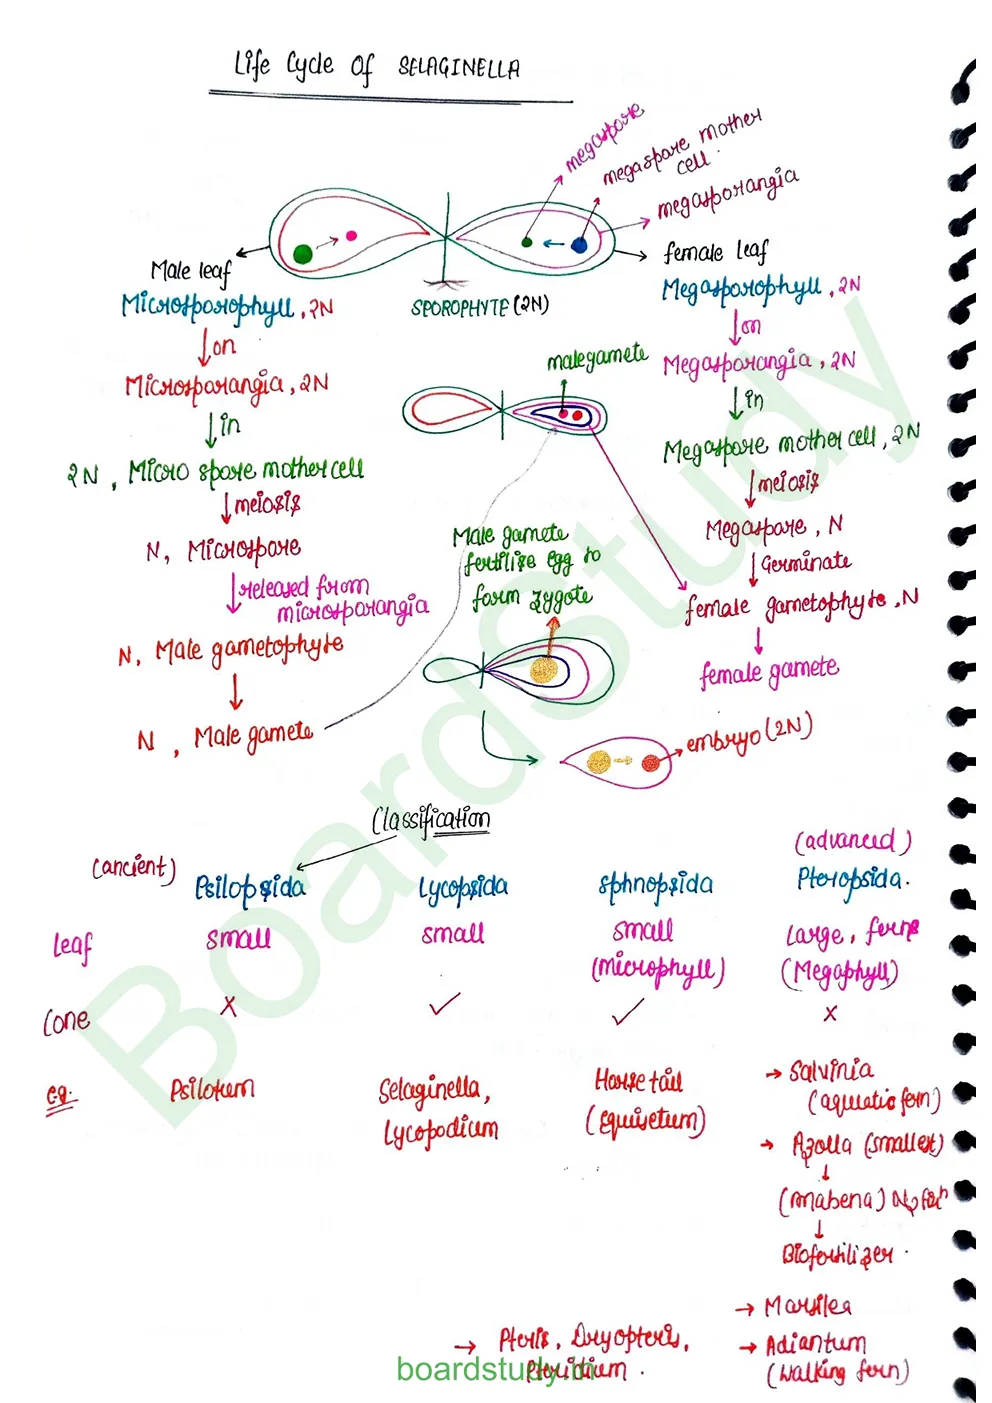 Life Cycle Of SELAGINELLA
megaspore
megaspore mother
cell
megasporangia
Male leaf
female leaf
Microsporophyll, 2N
SPOROPHYTE (2N)
Megasporophyll, 2N
↓on
↓on
Microsporangia, 2N
male gamete
Megasporangia, 2N
↓in
↓in
2N, Micro spore mother cell
Megaspore mother cell, 2N
↓meiosis
↓meiosis
N, Microspore
Megaspore, N
↓released from
microsporangia
↓Germinate
Male gamete
fertilize egg to
form zygote
N, Male gametophyte
female gametophyte, N
↓
↓
female gamete
N, Male gamete
embryo (2N)
Classification
(ancient)
(advanced)
Psilopsida Lycopsida Sphnopsida Pteropsida.
leaf small small small Large, ferns
(microphyll) (Megaphyll)
Cone x ✓ ✓ x
eg. Psilotum Selaginella, Horse tail → Salvinia
Lycopodium (Equisetum) (aquatic fern)
→ Azolla (smallest)
↓
(Anabena) N2 fixn
↓
Biofertilizer.
→ Marsilea
→ Pteris, Dryopteris, → Adiantum
Pteridium. (Walking fern)
boardstudy.in
BoardStudy